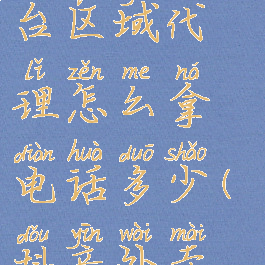 台区域代
lǐ zěn me ná
理怎么拿
diàn huà duō shǎo
电话多少(
dǒu yīn wài mài
抖音外卖